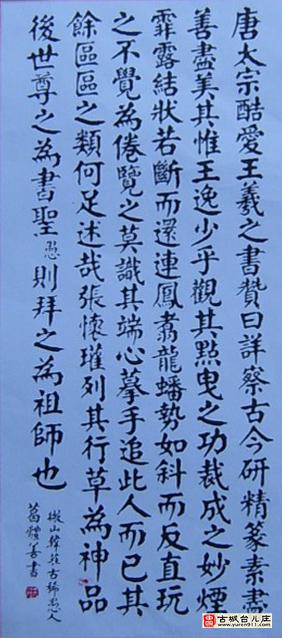 唐太宗酷愛王羲之書贊曰詳察古今研精篆素盡
善盡美其惟王逸少乎觀其點曳之功裁成之妙煙
霏露結狀若斷而還連鳳翥龍蟠勢如斜而反直玩
之不覺為倦覽之莫識其端心摹手追此人而已其
餘區區之類何足述哉張懷瓘列其行草為神品
後世尊之為書聖愚則拜之為祖師也
微山韓莊古稀愚人
葛善書
古城台儿庄
www.yuren911.com